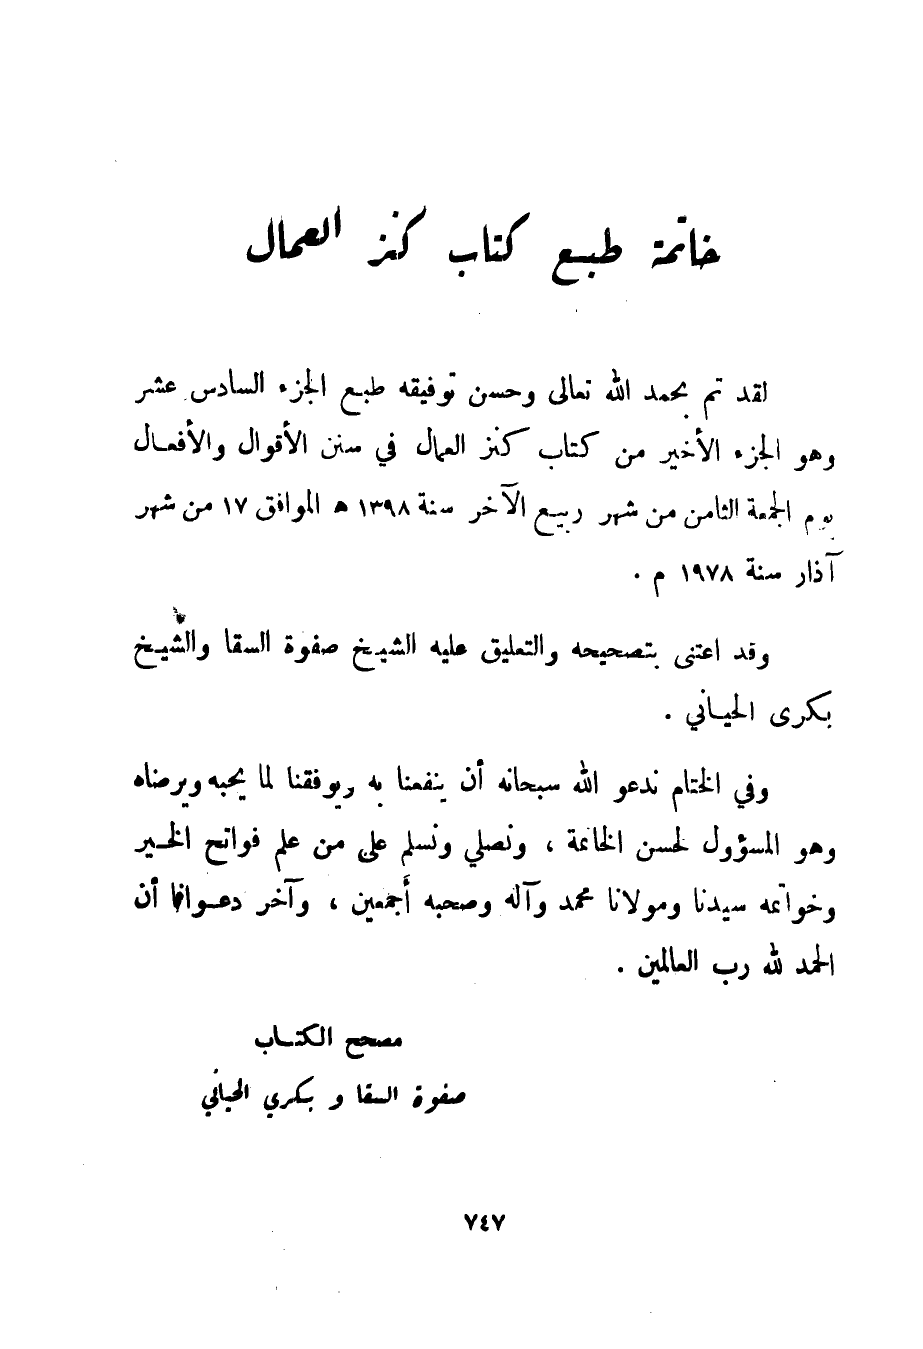 خاتمة طبع كتاب كنز العمال
لقد تم بحمد الله تعالى وحسن توفيقه طبع الجزء السادس عشر
وهو الجزء الأخير من كتاب كنز العمال في سنن الأقوال والأفعال
يوم الجمعة الثامن من شهر ربيع الآخر سنة ١٣٩٨ هـ الموافق ١٧ من شهر
آذار سنة ١٩٧٨ م .
وقد اعتنى بتصحيحه والتعليق عليه الشيخ صفوة السقا والشيخ
بكرى الحياني .
وفي الختام ندعو الله سبحانه أن ينفعنا به ويوفقنا لما يحبه ويرضاه
وهو المسؤول لحسن الخاتمة ، ونصلي ونسلم على من علم فواتح الخير
وخواتمه سيدنا ومولانا محمد وآله وصحبه أجمعين ، وآخر دعوانا أن
الحمد لله رب العالمين .
مصحح الكتاب
صفوة السقا و بكري الحياني
٧٤٧